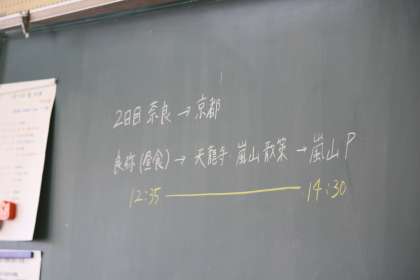 2日目 奈良 → 京都
良弥(昼食) → 天龍寺 嵐山散策 → 嵐山P
12:35 14:30